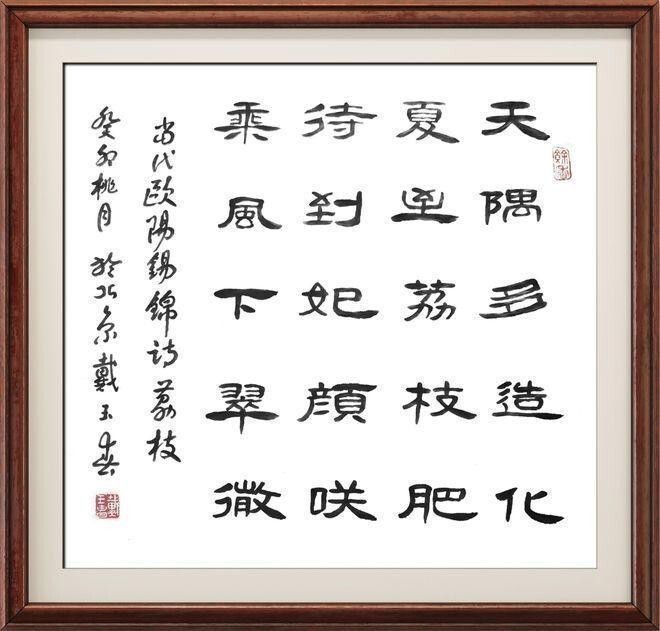 天隅多造化
夏至荔枝肥
待到妃顏咲
乘風下翠微
当代歐陽錫錦詩荔枝
癸卯桃月 於北京戴玉